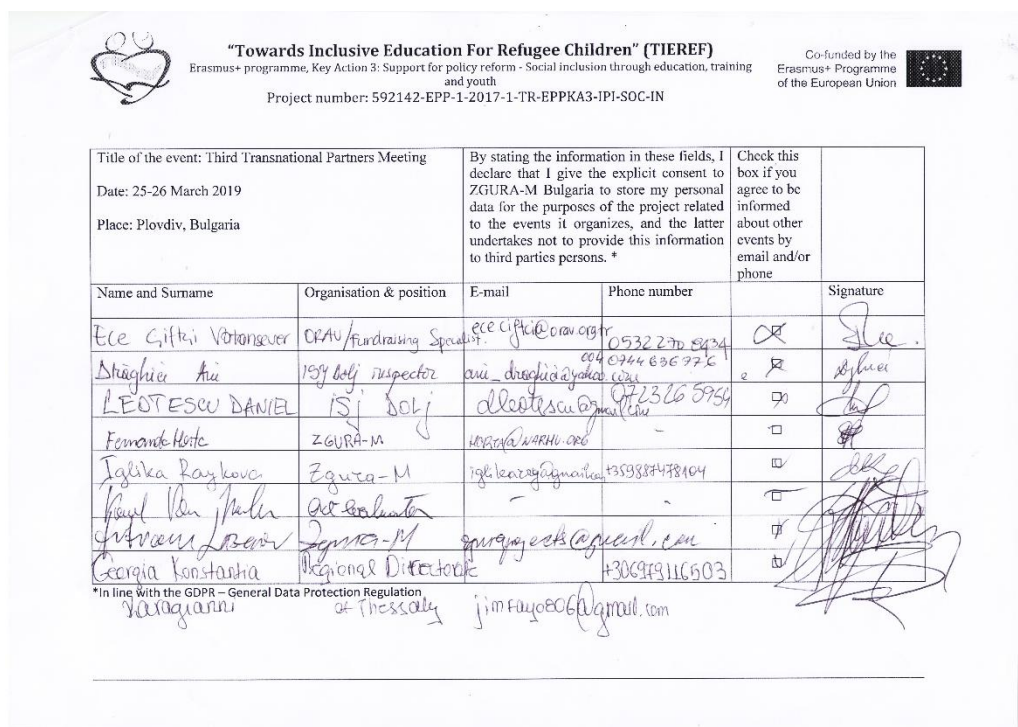 "Towards Inclusive Education For Refugee Children" (TIEREF)
Erasmus+ programme, Key Action 3: Support for policy reform - Social inclusion through education, training
and youth
Project number: 592142-EPP-1-2017-1-TR-EPPKA3-IPI-SOC-IN
Co-funded by the
Erasmus+ Programme
of the European Union
Title of the event: Third Transnational Partners Meeting
Date: 25-26 March 2019
Place: Plovdiv, Bulgaria
By stating the information in these fields, I
declare that I give the explicit consent to
ZGURA-M Bulgaria to store my personal
data for the purposes of the project related
to the events it organizes, and the latter
undertakes not to provide this information
to third parties persons. *
Check this
box if you
agree to be
informed
about other
events by
email and/or
phone
Name and Surname Organisation & position E-mail Phone number Signature
Ece Çiftçi ORAV/Fundraising Specialist. ece.ciftci@orav.org.tr 0532 270 8434
Drăghici 0744636776
LEOTESCU DANIEL ISJ DOLJ 0723265954
ZGURA-M
Iglika Raykova Zgura-M +359887478104
Zgura-M
Georgia Konstantia Regional Directorate +306979116503
*In line with the GDPR – General Data Protection Regulation
Karagianni of Thessaly jimfayo806@gmail.com